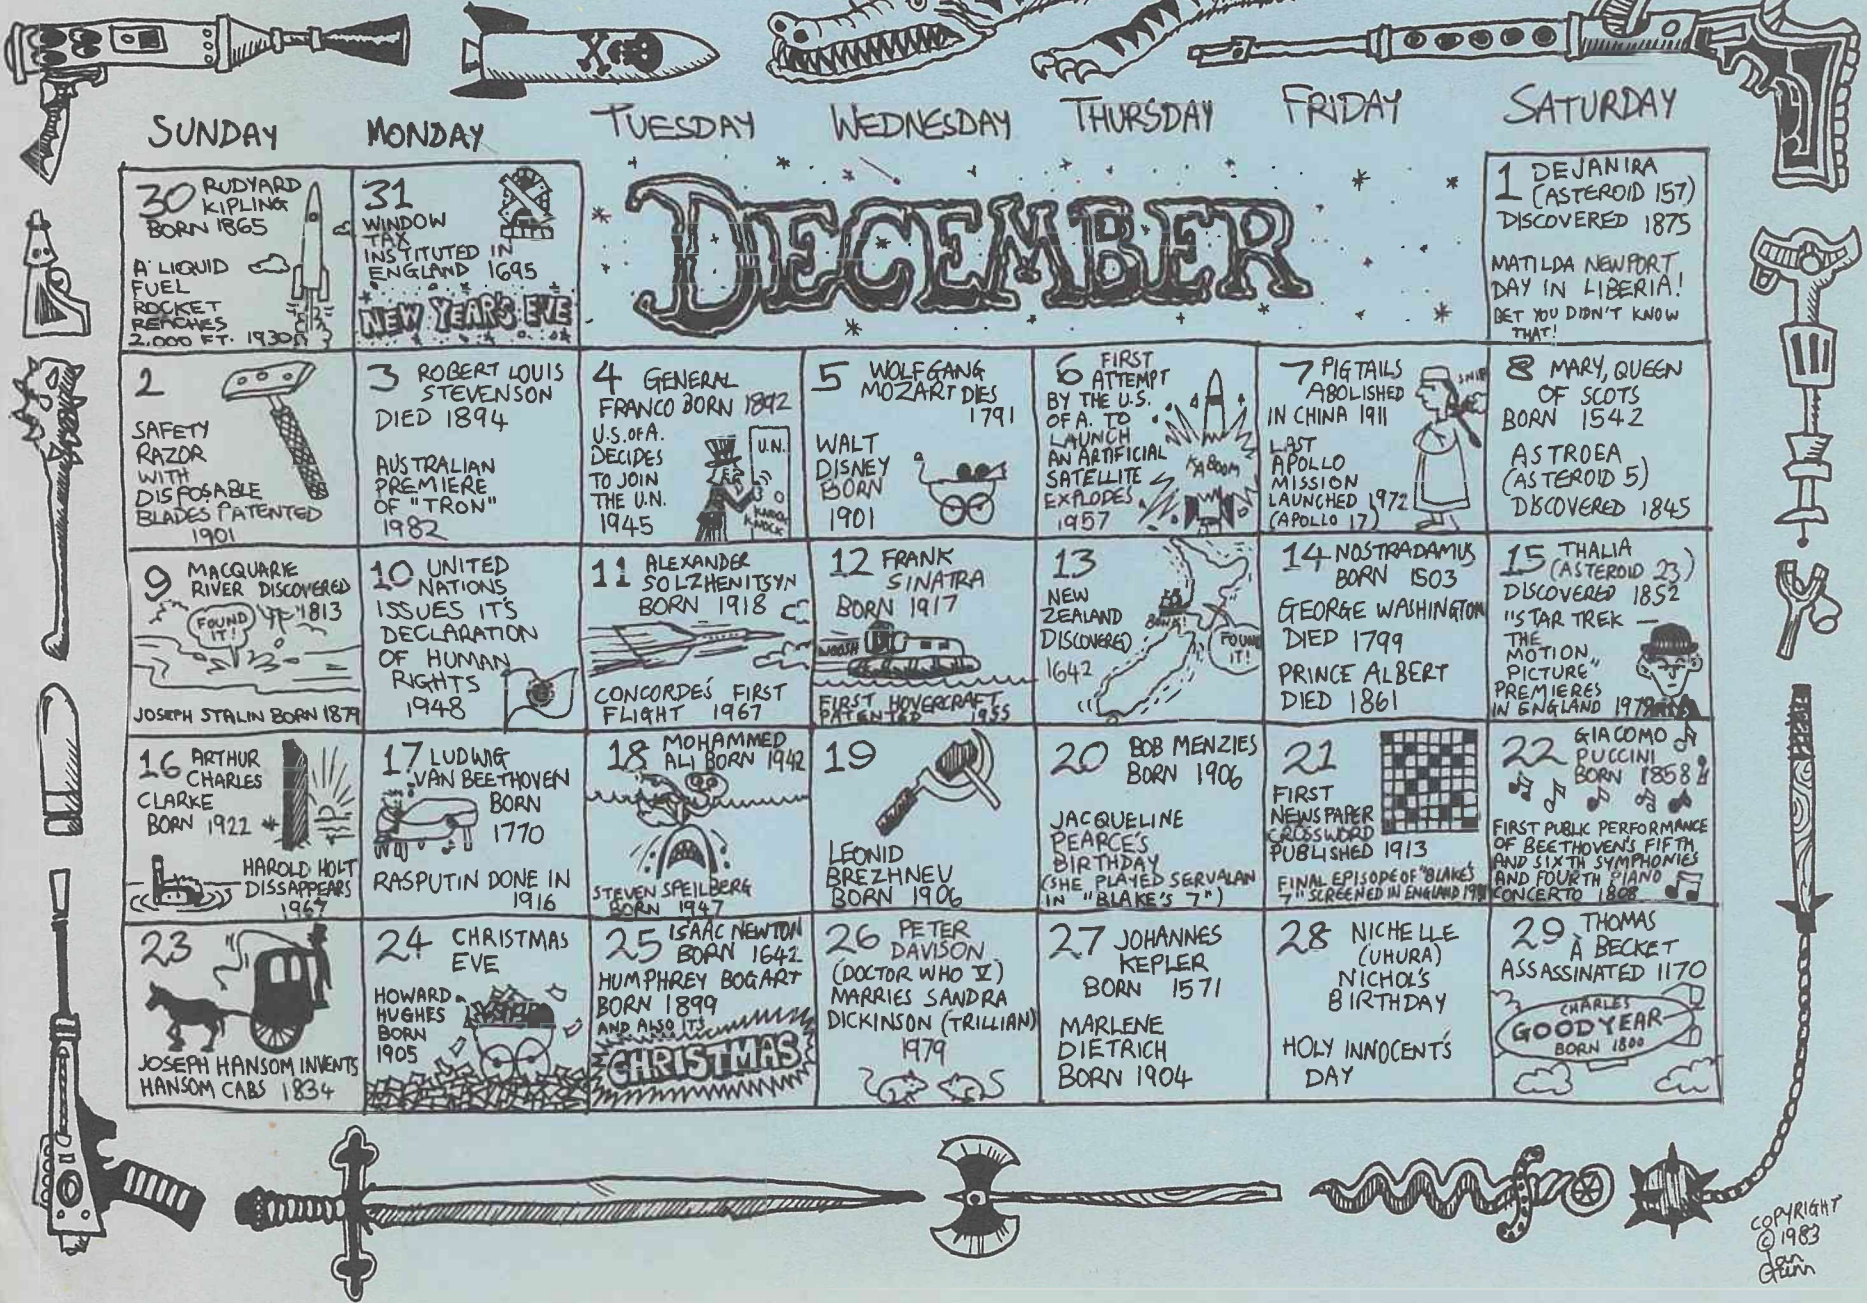 SUNDAY MONDAY TUESDAY WEDNESDAY THURSDAY FRIDAY SATURDAY
DECEMBER
30 RUDYARD
KIPLING
BORN 1865
A LIQUID
FUEL
ROCKET
REACHES
2,000 FT. 1930
31
WINDOW
TAX
INSTITUTED IN
ENGLAND 1695
NEW YEAR'S EVE
1 DEJANIRA
(ASTEROID 157)
DISCOVERED 1875
MATILDA NEWPORT
DAY IN LIBERIA!
BET YOU DIDN'T KNOW
THAT!
2
SAFETY
RAZOR
WITH
DISPOSABLE
BLADES PATENTED
1901
3 ROBERT LOUIS
STEVENSON
DIED 1894
AUSTRALIAN
PREMIERE
OF "TRON"
1982
4 GENERAL
FRANCO BORN 1892
U.S. OF A.
DECIDES
TO JOIN
THE U.N.
1945
U.N.
KNOCK
KNOCK
5 WOLFGANG
MOZART DIES
1791
WALT
DISNEY
BORN
1901
6 FIRST
ATTEMPT
BY THE U.S.
OF A. TO
LAUNCH
AN ARTIFICIAL
SATELLITE
EXPLODES
1957
KABOOM
7 PIGTAILS
ABOLISHED
IN CHINA 1911
SNIP
LAST
APOLLO
MISSION
LAUNCHED 1972
(APOLLO 17)
8 MARY, QUEEN
OF SCOTS
BORN 1542
ASTROEA
(ASTEROID 5)
DISCOVERED 1845
9 MACQUARIE
RIVER DISCOVERED
1813
FOUND
IT!
JOSEPH STALIN BORN 1879
10 UNITED
NATIONS
ISSUES IT'S
DECLARATION
OF HUMAN
RIGHTS
1948
11 ALEXANDER
SOLZHENITSYN
BORN 1918
CONCORDE'S FIRST
FLIGHT 1967
12 FRANK
SINATRA
BORN 1917
WOOSH
FIRST HOVERCRAFT
PATENTED 1955
13
NEW
ZEALAND
DISCOVERED
1642
FOUND
IT!
14 NOSTRADAMUS
BORN 1503
GEORGE WASHINGTON
DIED 1799
PRINCE ALBERT
DIED 1861
15 THALIA
(ASTEROID 23)
DISCOVERED 1852
"STAR TREK —
THE
MOTION
PICTURE"
PREMIERES
IN ENGLAND 1979
16 ARTHUR
CHARLES
CLARKE
BORN 1922
HAROLD HOLT
DISSAPPEARS
1967
17 LUDWIG
VAN BEETHOVEN
BORN
1770
RASPUTIN DONE IN
1916
18 MOHAMMED
ALI BORN 1942
STEVEN SPEILBERG
BORN 1947
19
LEONID
BREZHNEV
BORN 1906
20 BOB MENZIES
BORN 1906
JACQUELINE
PEARCE'S
BIRTHDAY
(SHE PLAYED SERVALAN
IN "BLAKE'S 7")
21
FIRST
NEWSPAPER
CROSSWORD
PUBLISHED 1913
FINAL EPISODE OF "BLAKE'S
7" SCREENED IN ENGLAND
22 GIACOMO
PUCCINI
BORN 1858
FIRST PUBLIC PERFORMANCE
OF BEETHOVEN'S FIFTH
AND SIXTH SYMPHONIES
AND FOURTH PIANO
CONCERTO 1808
23
JOSEPH HANSOM INVENTS
HANSOM CABS 1834
24 CHRISTMAS
EVE
HOWARD
HUGHES
BORN
1905
25 ISAAC NEWTON
BORN 1642
HUMPHREY BOGART
BORN 1899
AND ALSO IT'S
CHRISTMAS
26 PETER
DAVISON
(DOCTOR WHO V)
MARRIES SANDRA
DICKINSON (TRILLIAN)
1979
27 JOHANNES
KEPLER
BORN 1571
MARLENE
DIETRICH
BORN 1904
28 NICHELLE
(UHURA)
NICHOL'S
BIRTHDAY
HOLY INNOCENT'S
DAY
29 THOMAS
À BECKET
ASSASSINATED 1170
CHARLES
GOODYEAR
BORN 1800
COPYRIGHT
© 1983
Ian
Gunn